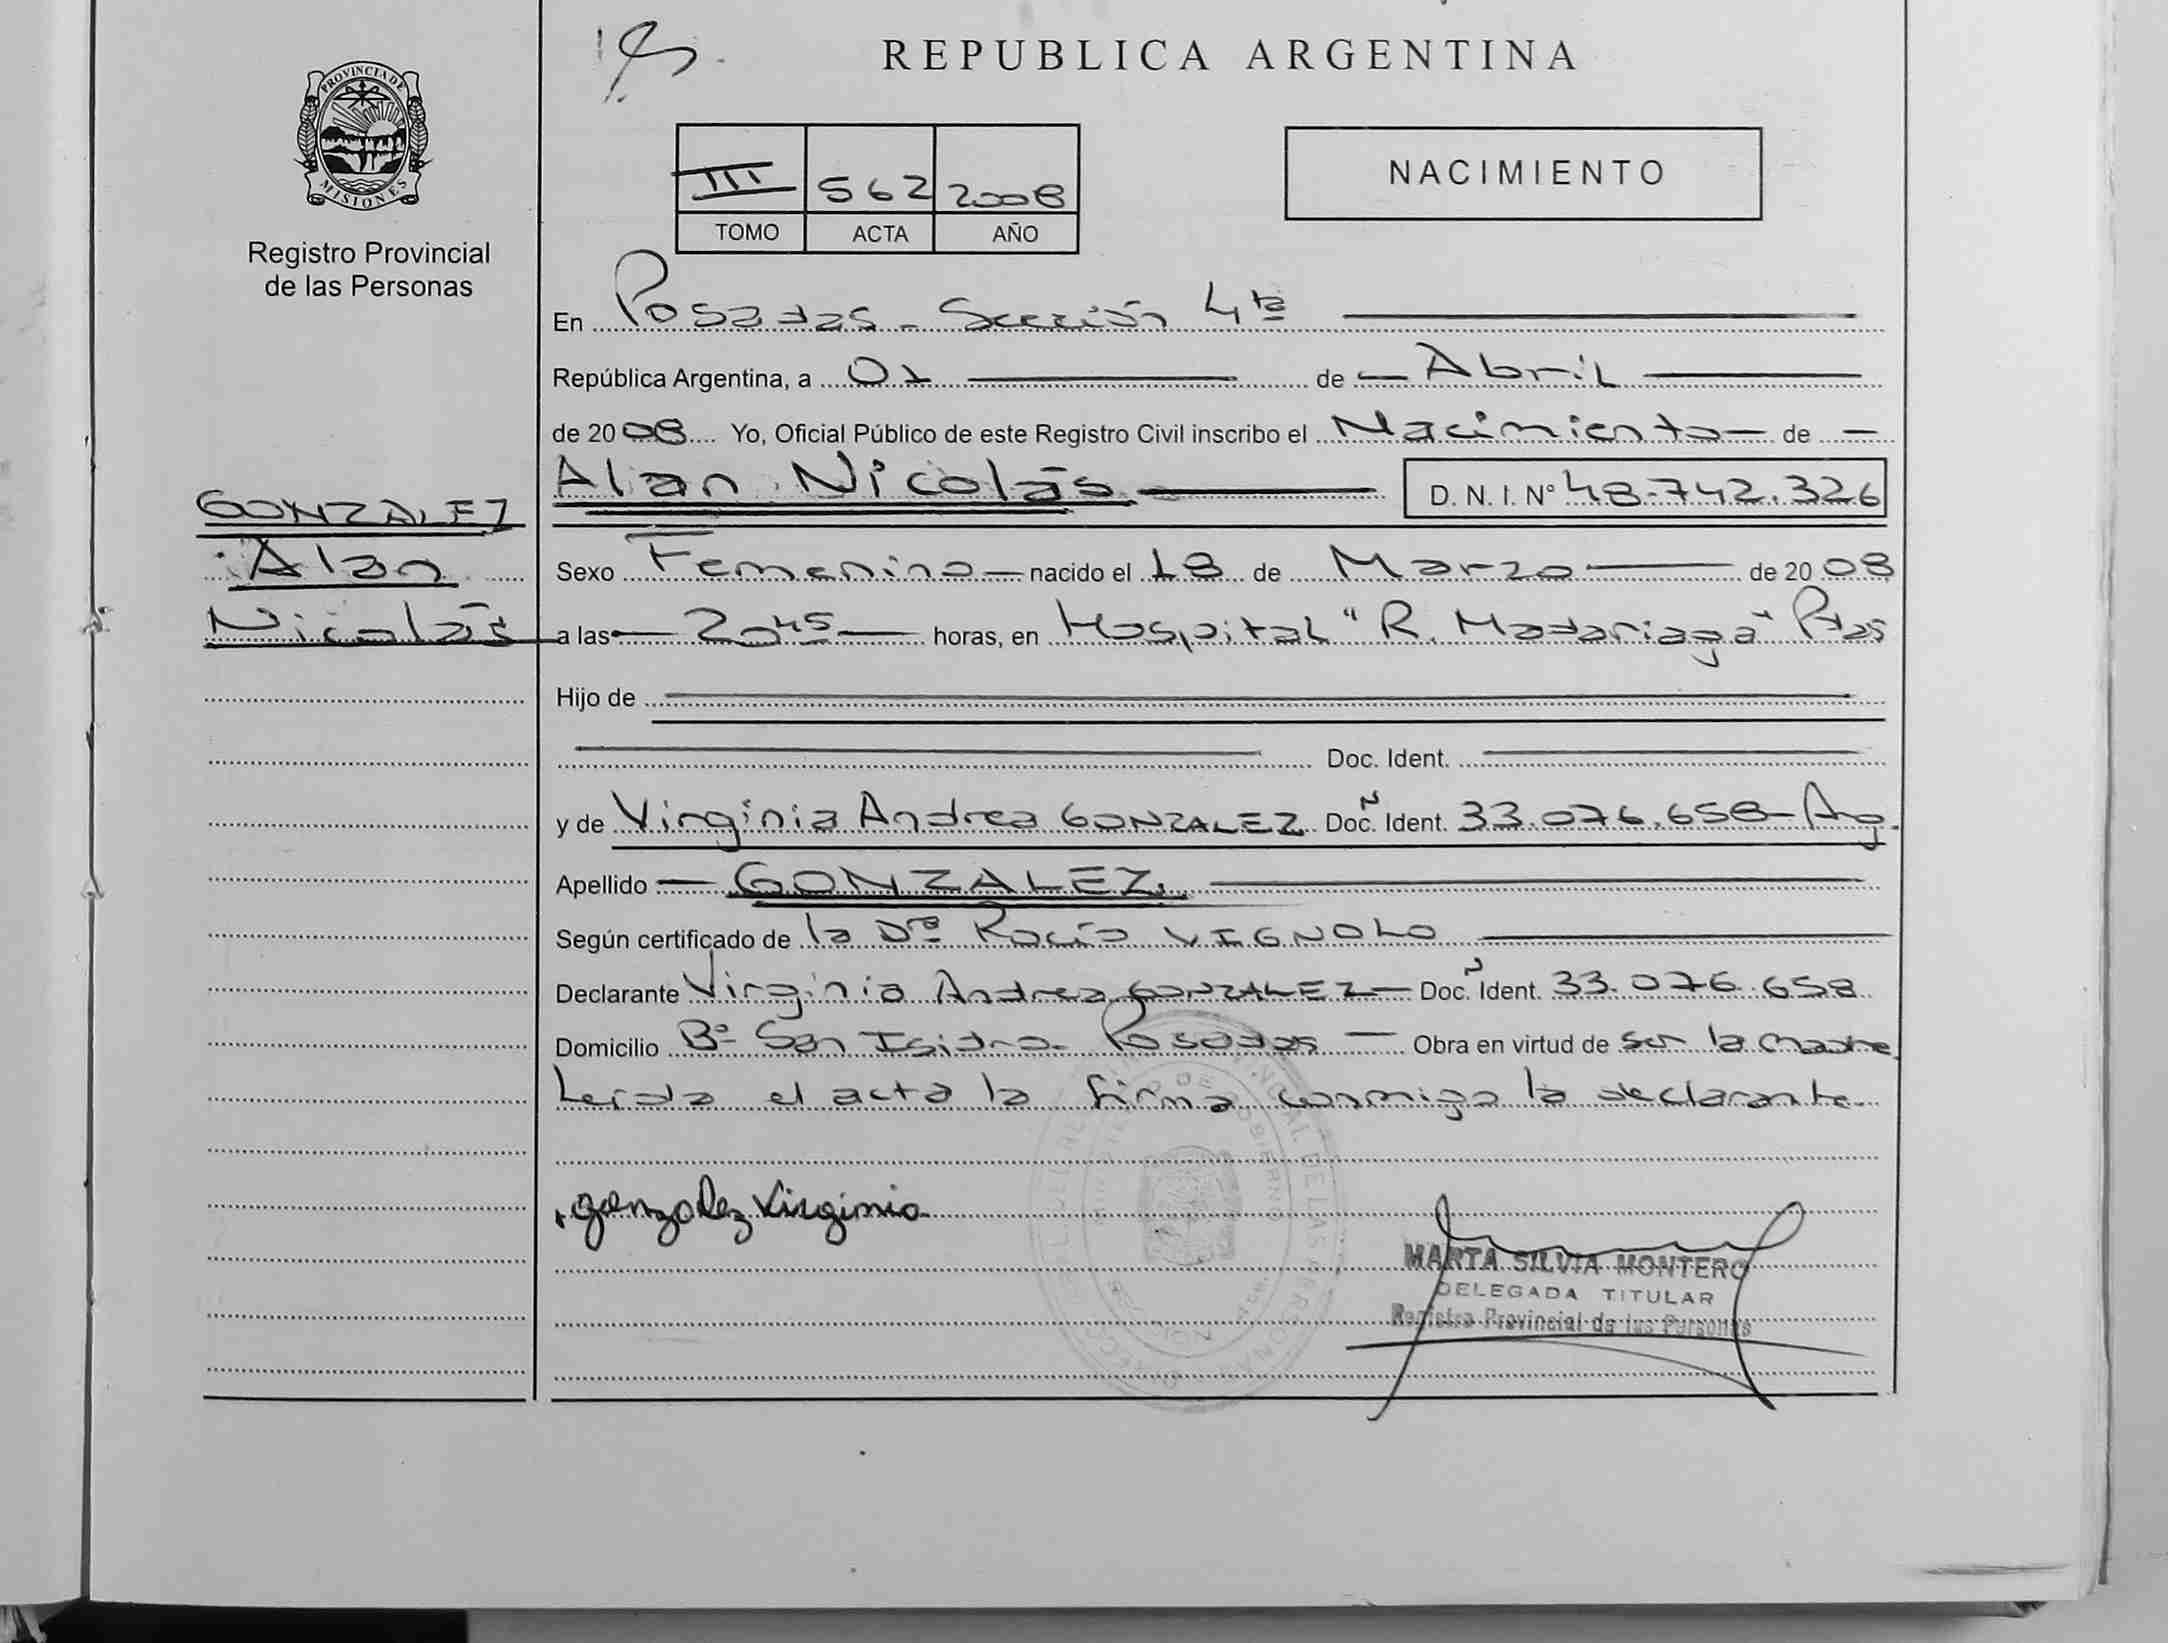 REPUBLICA ARGENTINA
PROVINCIA DE MISIONES
Registro Provincial
de las Personas
III 562 2008
TOMO ACTA AÑO
NACIMIENTO
En Posadas - Sección 4ta
República Argentina, a 01 de Abril
de 2008 Yo, Oficial Público de este Registro Civil inscribo el Nacimiento de
Alan Nicolás D. N. I. Nº 48.742.326
GONZALEZ
Alan
Nicolás
Sexo Femenino nacido el 18 de Marzo de 2008
a las 20 45 horas, en Hospital "R. Madariaga" Pdas
Hijo de
Doc. Ident.
y de Virginia Andrea GONZALEZ Doc. Ident. 33.076.658 - Arg.
Apellido GONZALEZ
Según certificado de la Dra Rocío VIGNOLO
Declarante Virginia Andrea GONZALEZ Doc. Ident. 33.076.658
Domicilio Bº San Isidro - Posadas Obra en virtud de ser la madre.
Leída el acta la firma conmigo la declarante.
gonzalez Virginia
MARTA SILVIA MONTERO
DELEGADA TITULAR
Registro Provincial de las Personas